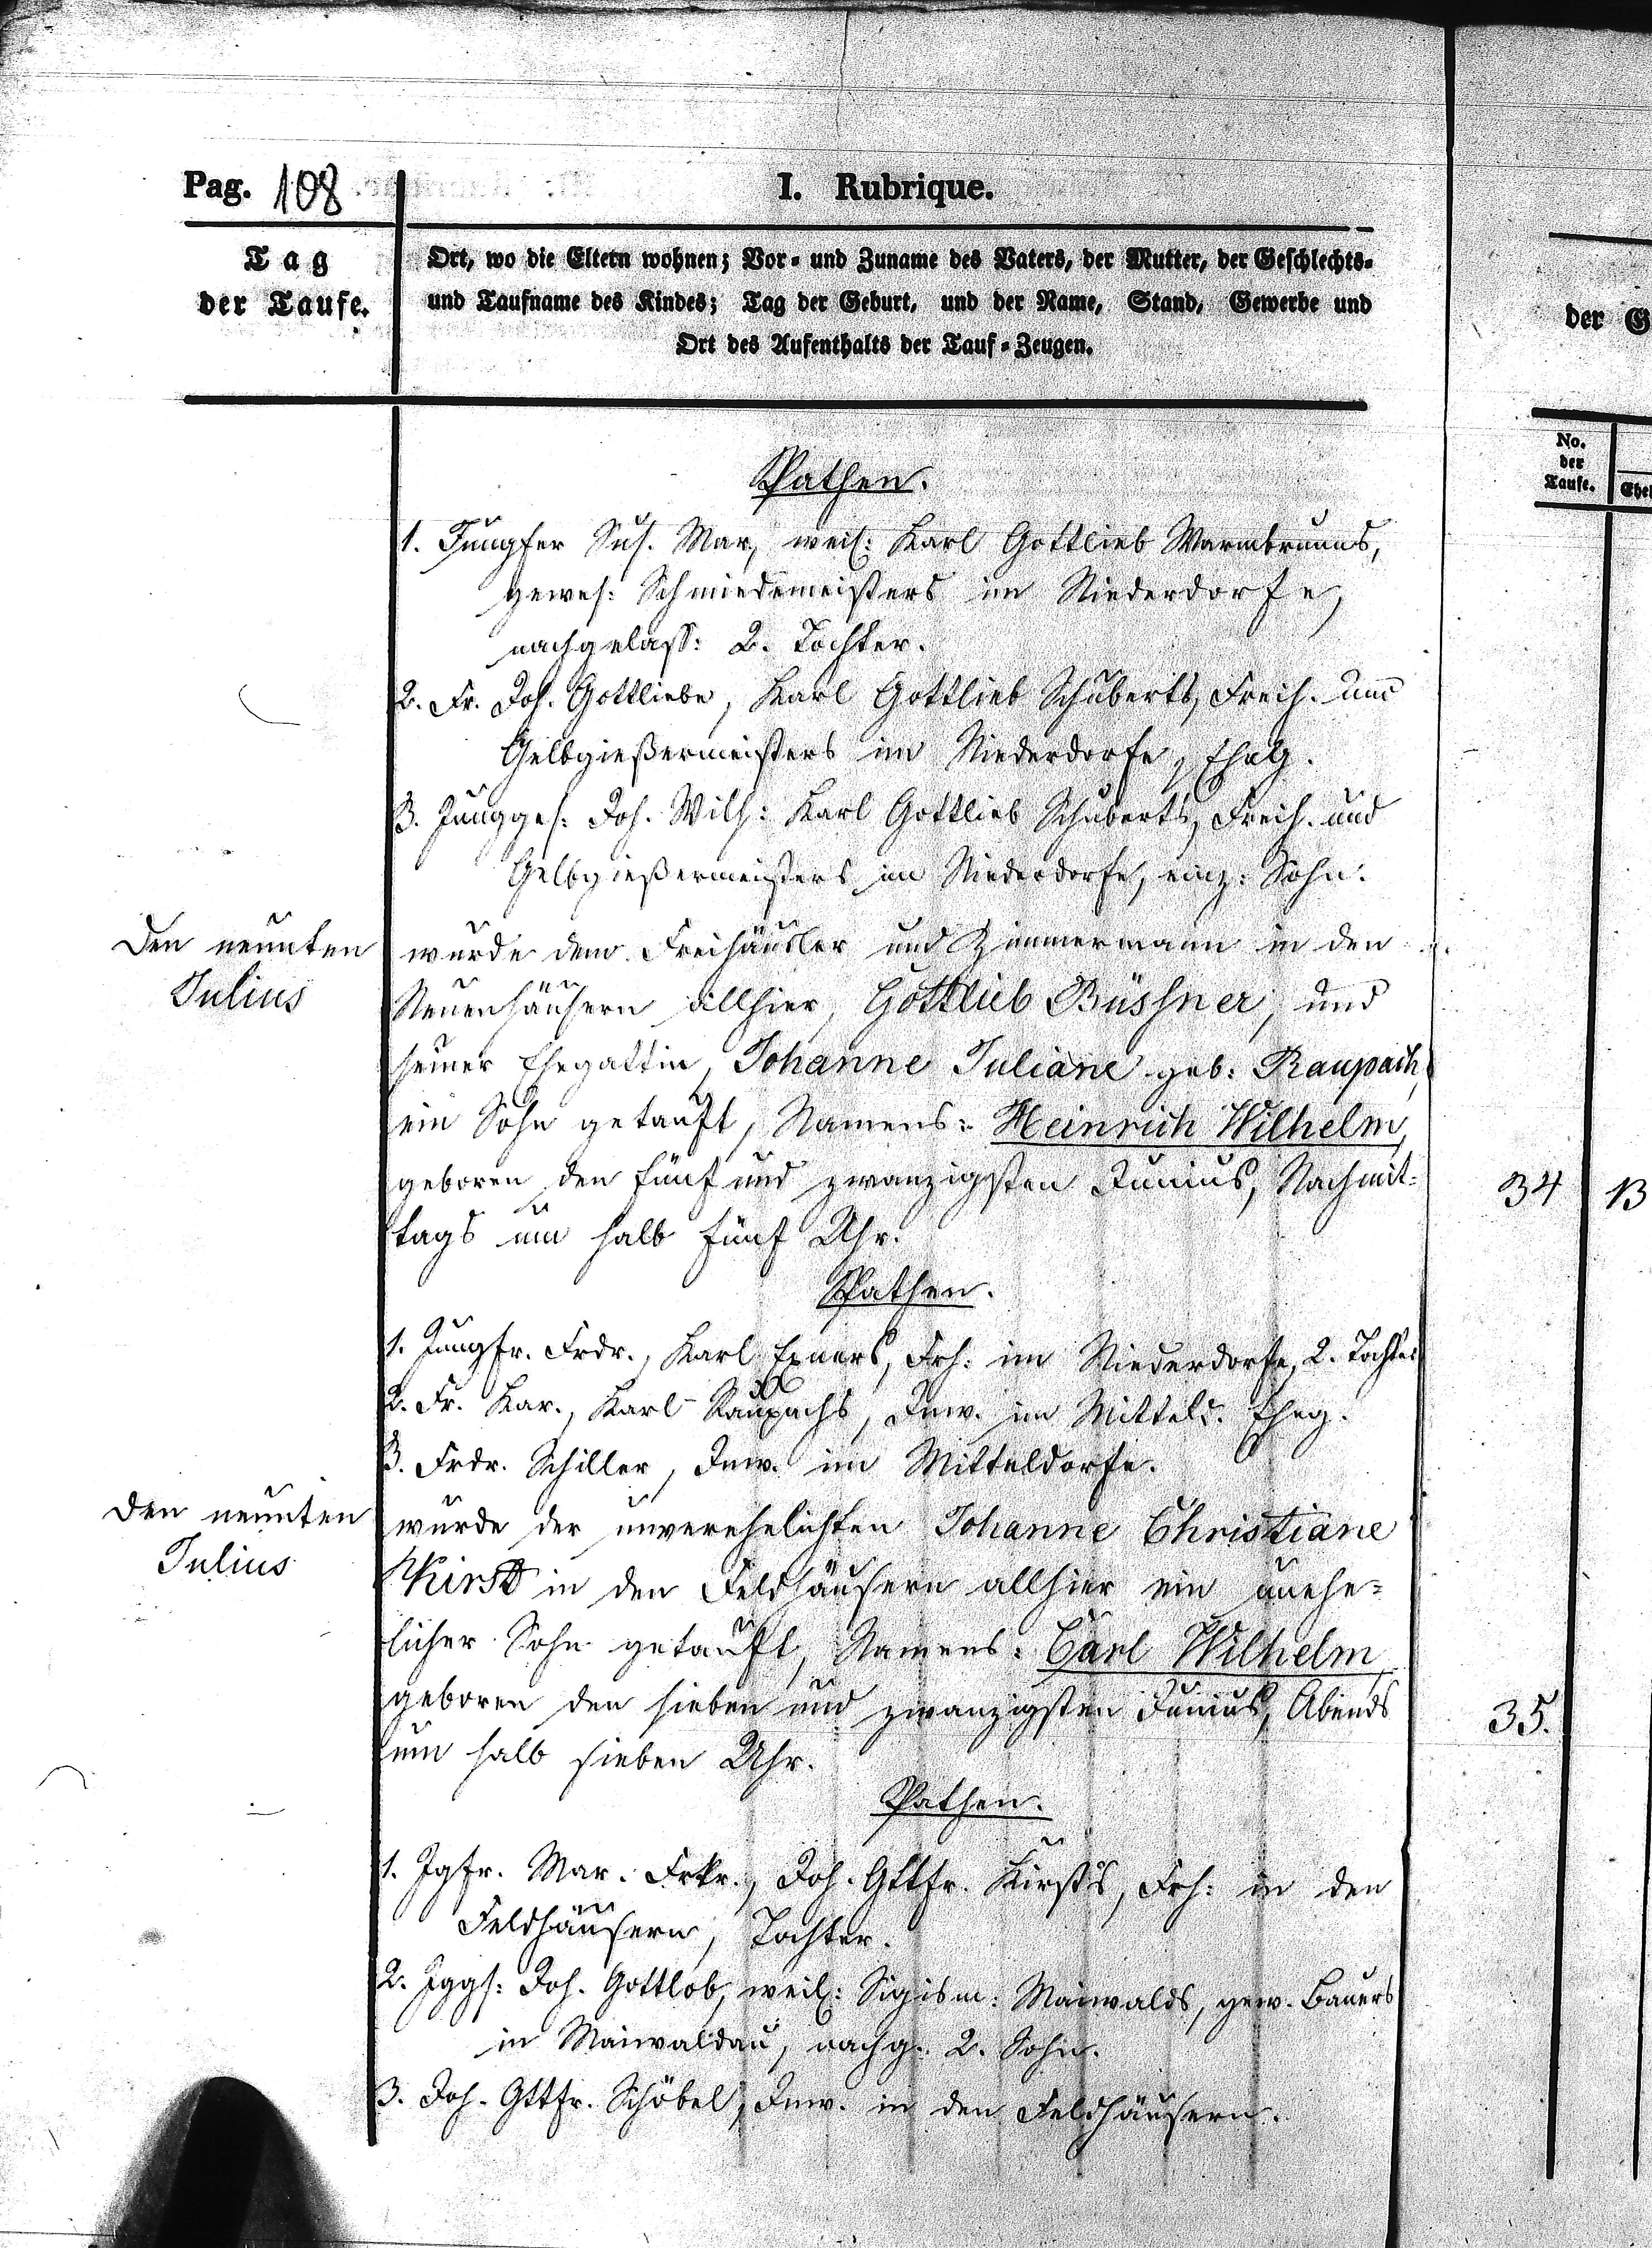 Pag. 108
I. Rubrique.
Tag
der Taufe.
Ort, wo die Eltern wohnen; Vor- und Zuname des Vaters, der Mutter, der Geschlechts-
und Taufname des Kindes; Tag der Geburt, und der Name, Stand, Gewerbe und
Ort des Aufenthalts der Tauf-Zeugen.
Pathen.
1. Jungfer Sus. Mar, weil: Karl Gottlieb Warmbrunns,
gewes: Schmiedemeisters im Niederdorfe,
nachgelass: 2. Tochter.
2. Fr. Joh. Gottliebe, Karl Gottlieb Schuberts, Freih. und
Gelbgießermeisters im Niederdorfe, Eheg.
3. Jungges: Joh. Wilh: Karl Gottlieb Schuberts, Freih. und
Gelbgießermeisters im Niederdorfe, einz: Sohn.
Den neunten
Julius
wurde dem Freihäusler und Zimmermann in den
Neuenhäusern allhier, Gottlieb Büssner, und
seiner Ehegattin, Johanne Juliane geb: Raupach,
ein Sohn getauft, Namens: Heinrich Wilhelm,
geboren den fünf und zwanzigsten Junius, Nachmit-
tags um halb fünf Uhr.
Pathen.
1. Jungfr. Frdr., Karl Exners, Frh: im Niederdorfe, 2. Tochter
2. Fr. Kar., Karl Raupachs, Inw. im Mitteld. Eheg.
3. Frdr. Schiller, Inw. im Mitteldorfe.
Den neunten
Julius
wurde der unverehelichten Johanne Christiane
Kirst in den Feldhäusern allhier ein unehe-
licher Sohn getauft, Namens: Carl Wilhelm,
geboren den sieben und zwanzigsten Junius, Abends
um halb sieben Uhr.
Pathen.
1. Jgfr. Mar. Frkr., Joh. Gttfr. Kirst's, Frh: in den
Feldhäusern, Tochter.
2. Jggs: Joh. Gottlob, weil: Sigism: Maiwalds, gew. Bauers
in Maiwaldau, nachg. 2. Sohn.
3. Joh. Gttfr. Schöbel, Inw. in den Feldhäusern.
der G
No.
der
Taufe.
Ehel
34
13
35.